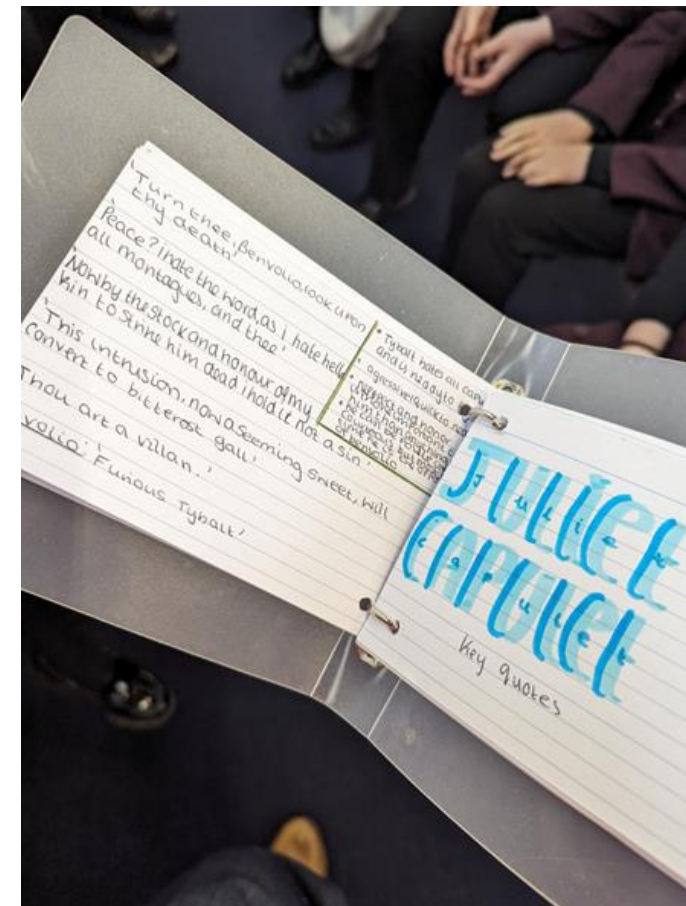 'Turn thee, Benvolio, look upon
thy death'
'Peace? i hate the word, as i hate hell,
all montagues, and thee'
'Now by the stock and honour of my
kin to strike him dead i hold it not a sin.'
'This intrusion, now seeming sweet, will
convert to bitterest gall'
'Thou art a villan.'
volio: 'Furious Tybalt'
• Tybalt hates all
and is ready to
• agressive/quick to
• respect and honor
JULIET
Juliet
CAPULET
Capulet
Key quotes